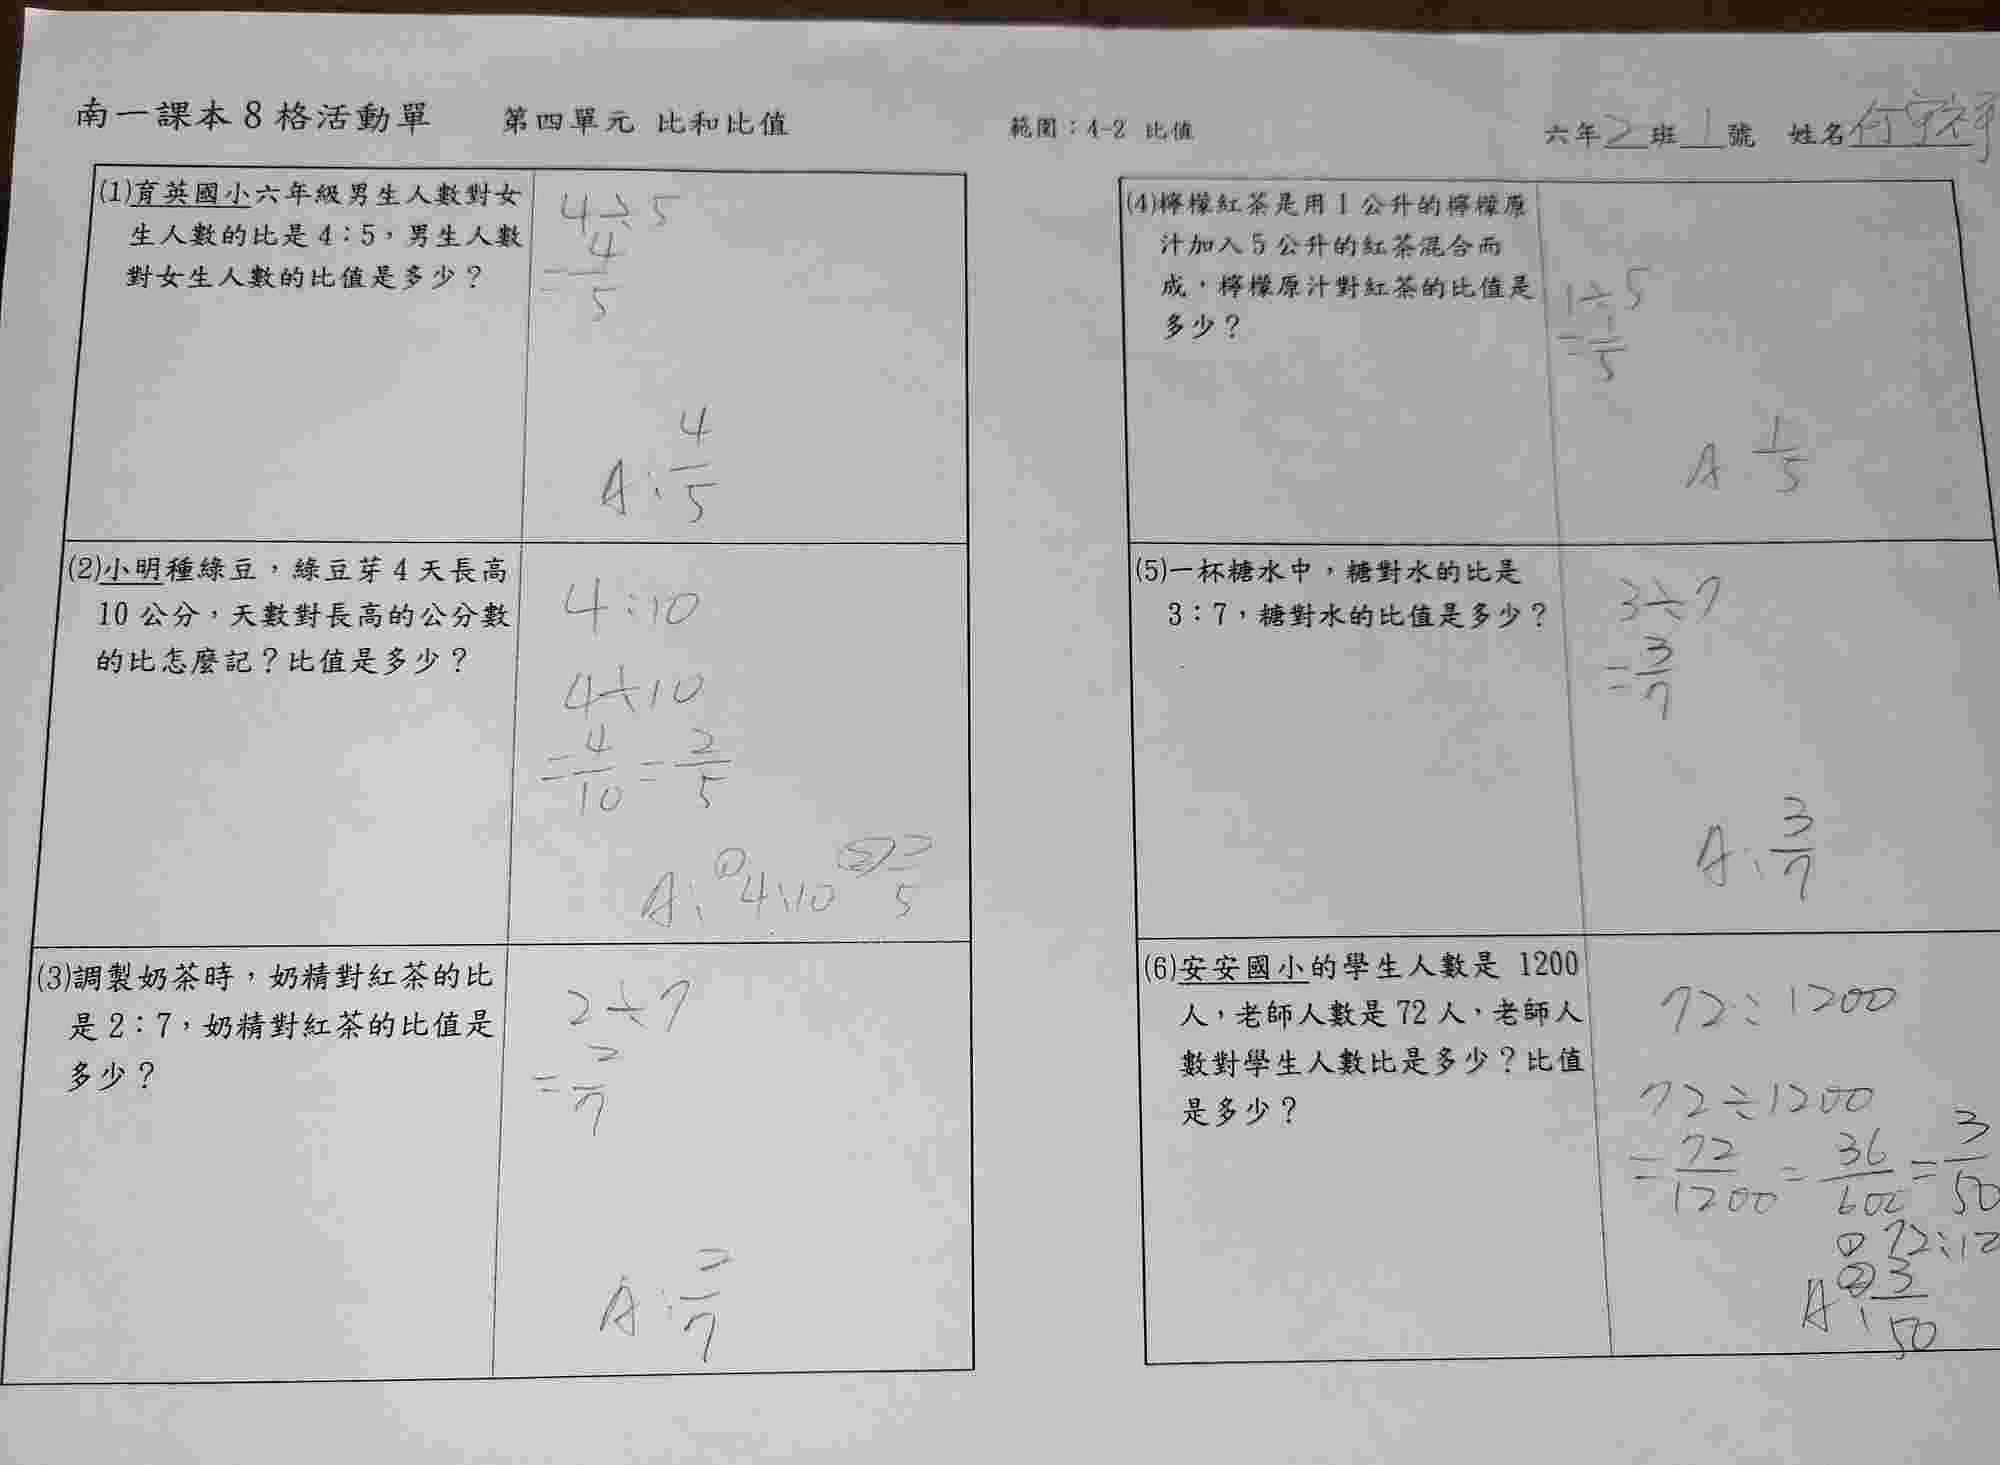 南一課本8格活動單 第四單元 比和比值 範圍：4-2 比值 六年2班1號 姓名
(1)育英國小六年級男生人數對女
生人數的比是4：5，男生人數
對女生人數的比值是多少？
4÷5
=4/5
A：4/5
(2)小明種綠豆，綠豆芽4天長高
10公分，天數對長高的公分數
的比怎麼記？比值是多少？
4：10
4÷10
=4/10=2/5
A：①4：10 ②2/5
(3)調製奶茶時，奶精對紅茶的比
是2：7，奶精對紅茶的比值是
多少？
2÷7
=2/7
A：2/7
(4)檸檬紅茶是用1公升的檸檬原
汁加入5公升的紅茶混合而
成，檸檬原汁對紅茶的比值是
多少？
1÷5
=1/5
A 1/5
(5)一杯糖水中，糖對水的比是
3：7，糖對水的比值是多少？
3÷7
=3/7
A：3/7
(6)安安國小的學生人數是1200
人，老師人數是72人，老師人
數對學生人數比是多少？比值
是多少？
72：1200
72÷1200
=72/1200=36/600=3/50
①72：12
A：②3/50